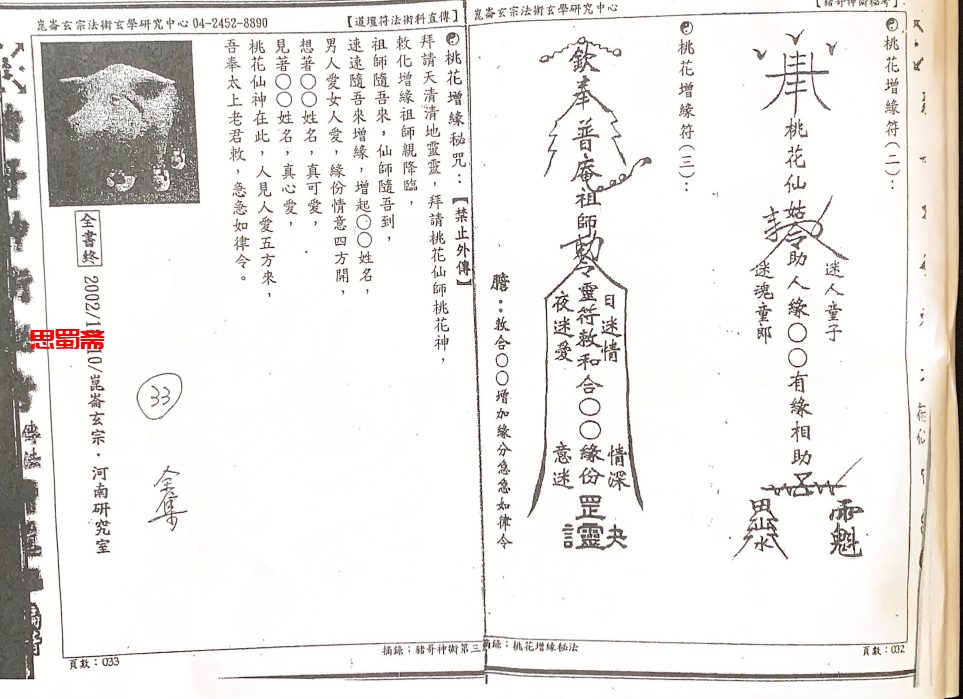 【豬哥神術秘笈】
崑崙玄宗法術玄學研究中心
桃花增緣符(二)：
桃花仙姑令助人緣〇〇有緣相助
迷人童子
迷魂童郎
魁
田山水
桃花增緣符(三)：
欽奉普庵祖師勅令靈符敕和合〇〇緣份罡靈
日迷情
夜迷愛
情深
意迷
膽：敕合〇〇增加緣分急急如律令
摘錄：桃花增緣秘法
頁數：032
崑崙玄宗法術玄學研究中心 04-2452-8890
【道壇符法術科直傳】
桃花增緣秘咒：【禁止外傳】
拜請天清清地靈靈，拜請桃花仙師桃花神，
敕化增緣祖師親降臨，
祖師隨吾來，仙師隨吾到，
速速隨吾來增緣，增起〇〇姓名，
男人愛女人愛，緣份情意四方開，
想著〇〇姓名，真可愛，
見著〇〇姓名，真心愛，
桃花仙神在此，人見人愛五方來，
吾奉太上老君敕，急急如律令。
全書終
2002/1
10/崑崙玄宗·河南研究室
思蜀斋
33
全集
傳法
摘錄：豬哥神術第三
頁數：033